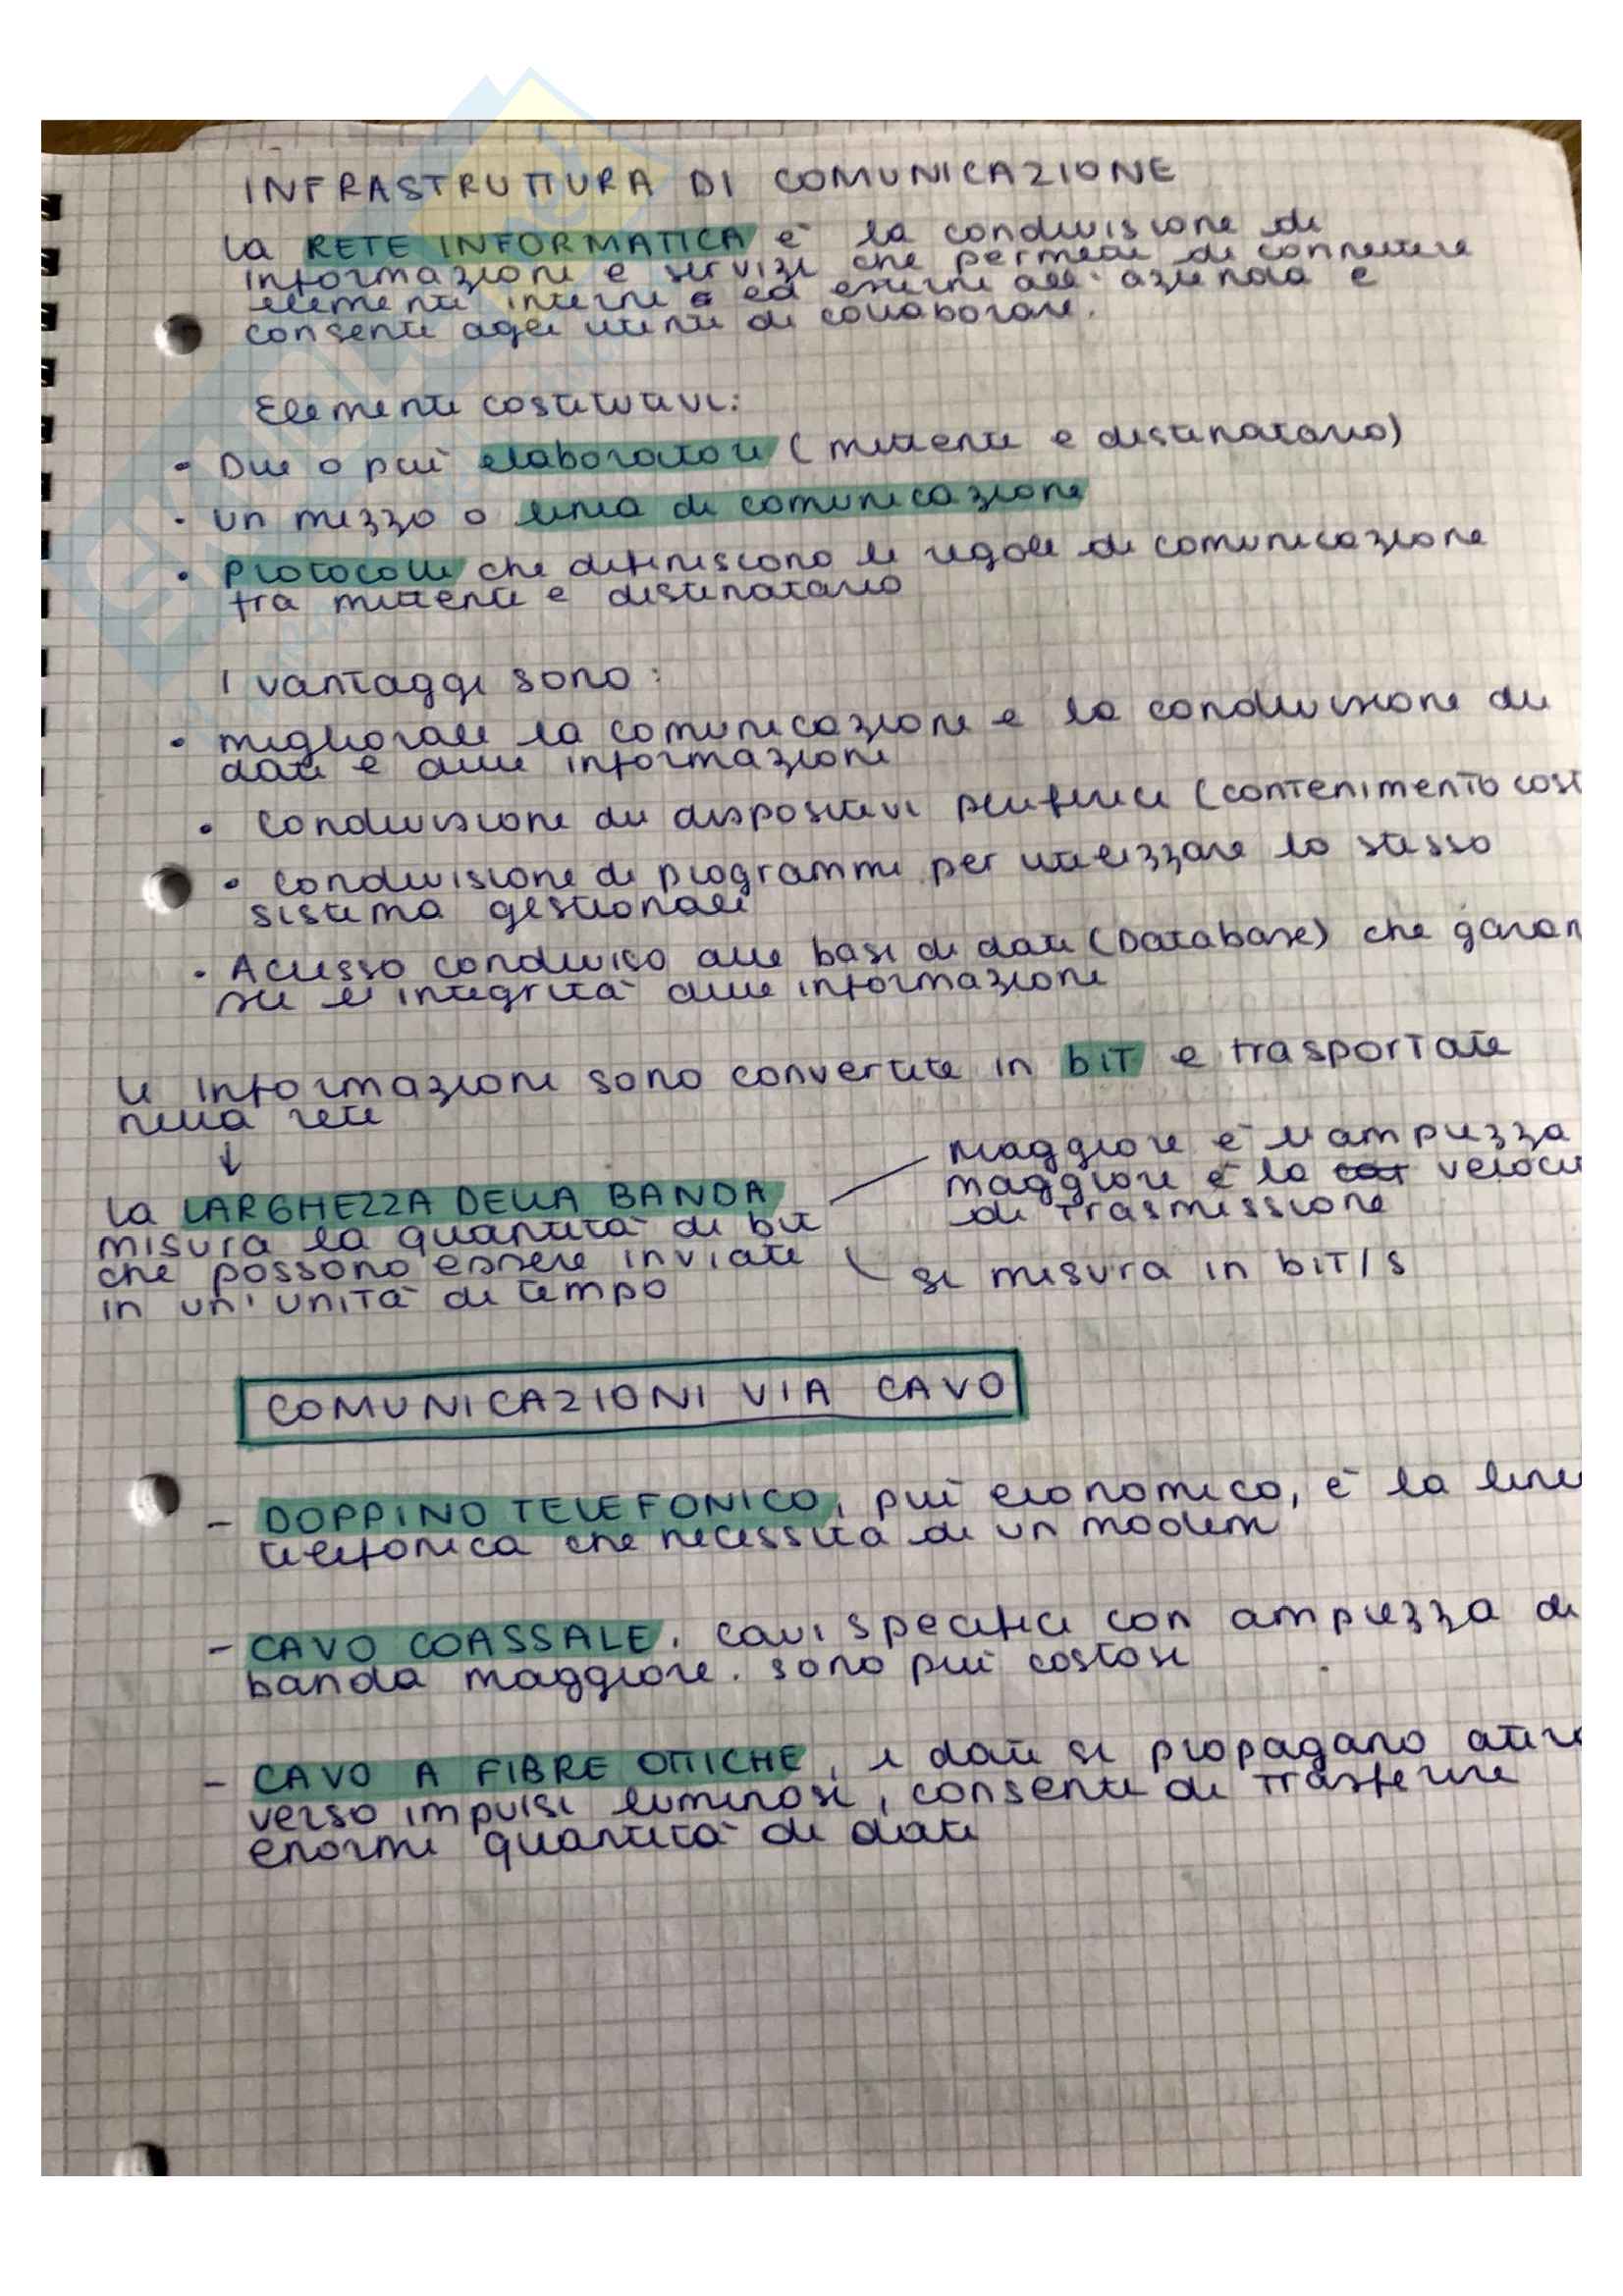 INFRASTRUTTURA DI COMUNICAZIONE
La RETE INFORMATICA è la condivisione di
informazioni e servizi che permette di connettere
elementi interni ed esterni all'azienda e
consente agli utenti di collaborare.
Elementi costitutivi:
• Due o più elaboratori (mittente e destinatario)
• un mezzo o linea di comunicazione
• Protocolli che definiscono le regole di comunicazione
tra mittente e destinatario
I vantaggi sono:
• migliorare la comunicazione e la condivisione di
dati e delle informazioni
• condivisione di dispositivi periferici (contenimento cost
• condivisione di programmi per utilizzare lo stesso
sistema gestionale
• Accesso condiviso alle basi di dati (Database) che garan
sce l'integrità delle informazioni
Le informazioni sono convertite in bit e trasportate
nella rete
↓
La LARGHEZZA DELLA BANDA
misura la quantità di bit
che possono essere inviate
in un'unità di tempo
Maggiore è l'ampiezza
maggiore è la veloci
di trasmissione
si misura in bit/s
COMUNICAZIONI VIA CAVO
- DOPPINO TELEFONICO, più economico, è la line
telefonica che necessita di un modem
- CAVO COASSALE, cavi specifici con ampiezza di
banda maggiore. sono più costosi
- CAVO A FIBRE OTTICHE, i dati si propagano attra
verso impulsi luminosi, consente di trasferire
enormi quantità di dati